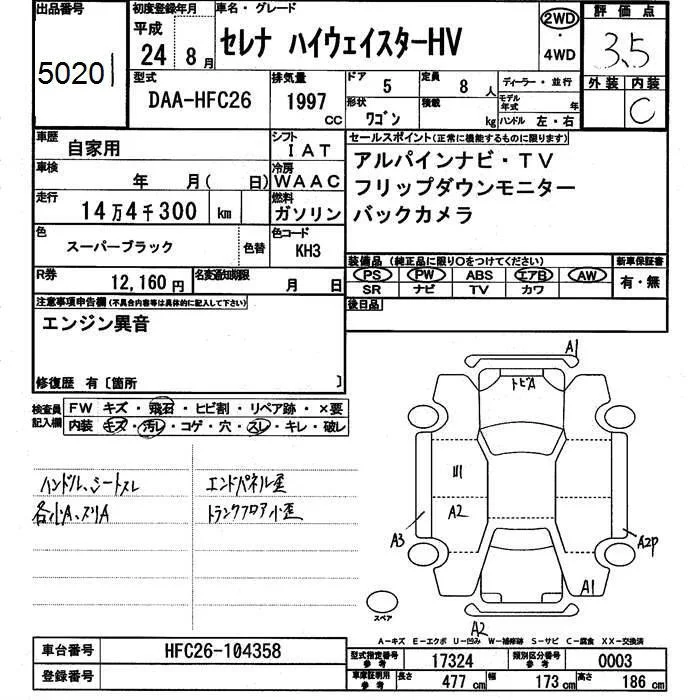 出品番号 初度登録年月 車名・グレード 2WD 評価点
5020 平成 24年 8月 セレナ ハイウェイスターHV ・ 4WD 3,5
型式 排気量 ドア 定員 ディーラー・並行 外装 内装
DAA-HFC26 1997 CC 5 8人 モデル年式 年 C
形状 積載 ハンドル 左・右
ワゴン kg
車歴 自家用 シフト IAT セールスポイント(正常に機能するものに限ります)
車検 年 月( 日) 冷房 WAAC アルパインナビ・TV
走行 14万4千300 km 燃料 ガソリン フリップダウンモニター
バックカメラ
色 スーパーブラック 色替 色コード KH3
装備品(純正品に限り○をつけてください) 新車保証書
PS PW ABS エアB AW 有・無
SR ナビ TV カワ
R券 12,160円 名変通知期限 月 日
後日品
注意事項申告欄(不具合内容等は具体的に記入して下さい)
エンジン異音
修復歴 有〔箇所 〕
検査員記入欄 FW キズ・飛石・ヒビ割・リペア跡・×要
内装 キズ・汚レ・コゲ・穴・スレ・キレ・破レ
ハンドル、シートスレ エンドパネル歪
各小A、スリA トランクフロア小歪
A1
トビA
U1
A2
A3 A2P
A1
スペア
A2
A-キズ E-エクボ U-凹み W-補修跡 S-サビ C-腐食 XX-交換済
車台番号 HFC26-104358
型式指定番号 参考 17324 類別区分番号 参考 0003
登録番号
車庫証明用 参考 長さ 477cm 幅 173cm 高さ 186cm